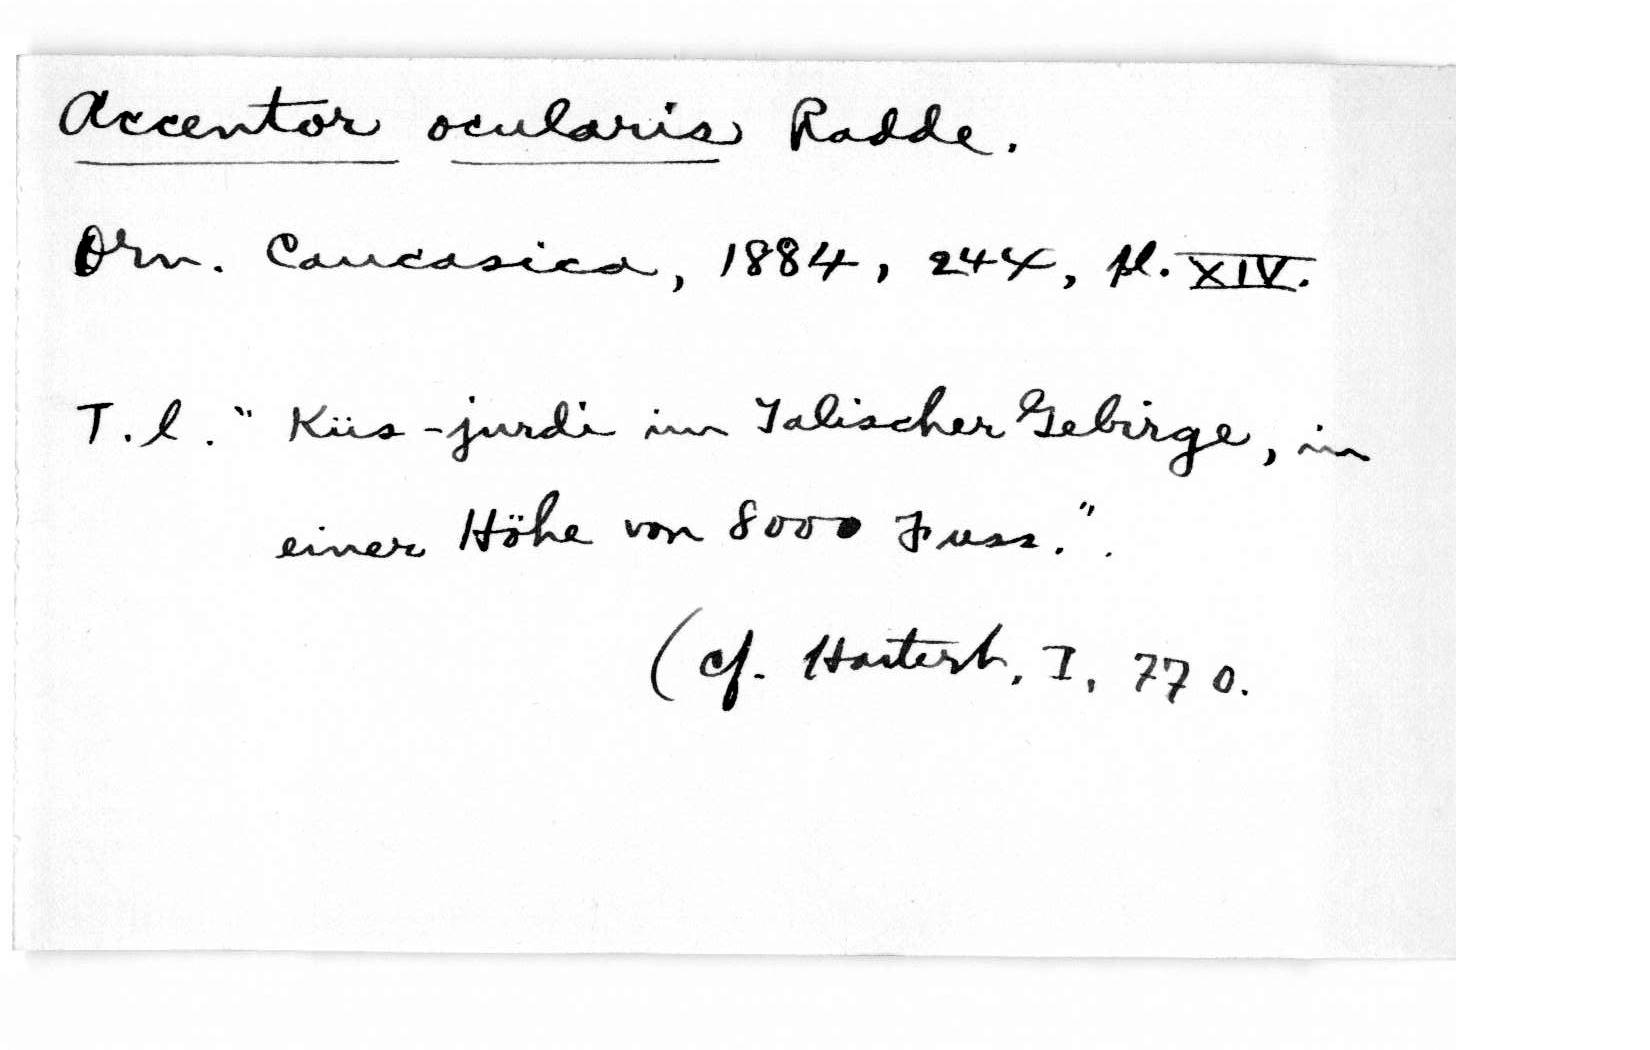 Accentor ocularis Radde.
Orn. Caucasica, 1884, 244, pl. XIV.
T.l. "Küs-jurdi im Talischer Gebirge, in
einer Höhe von 8000 Fuss.".
(cf. Hartert, I, 770.